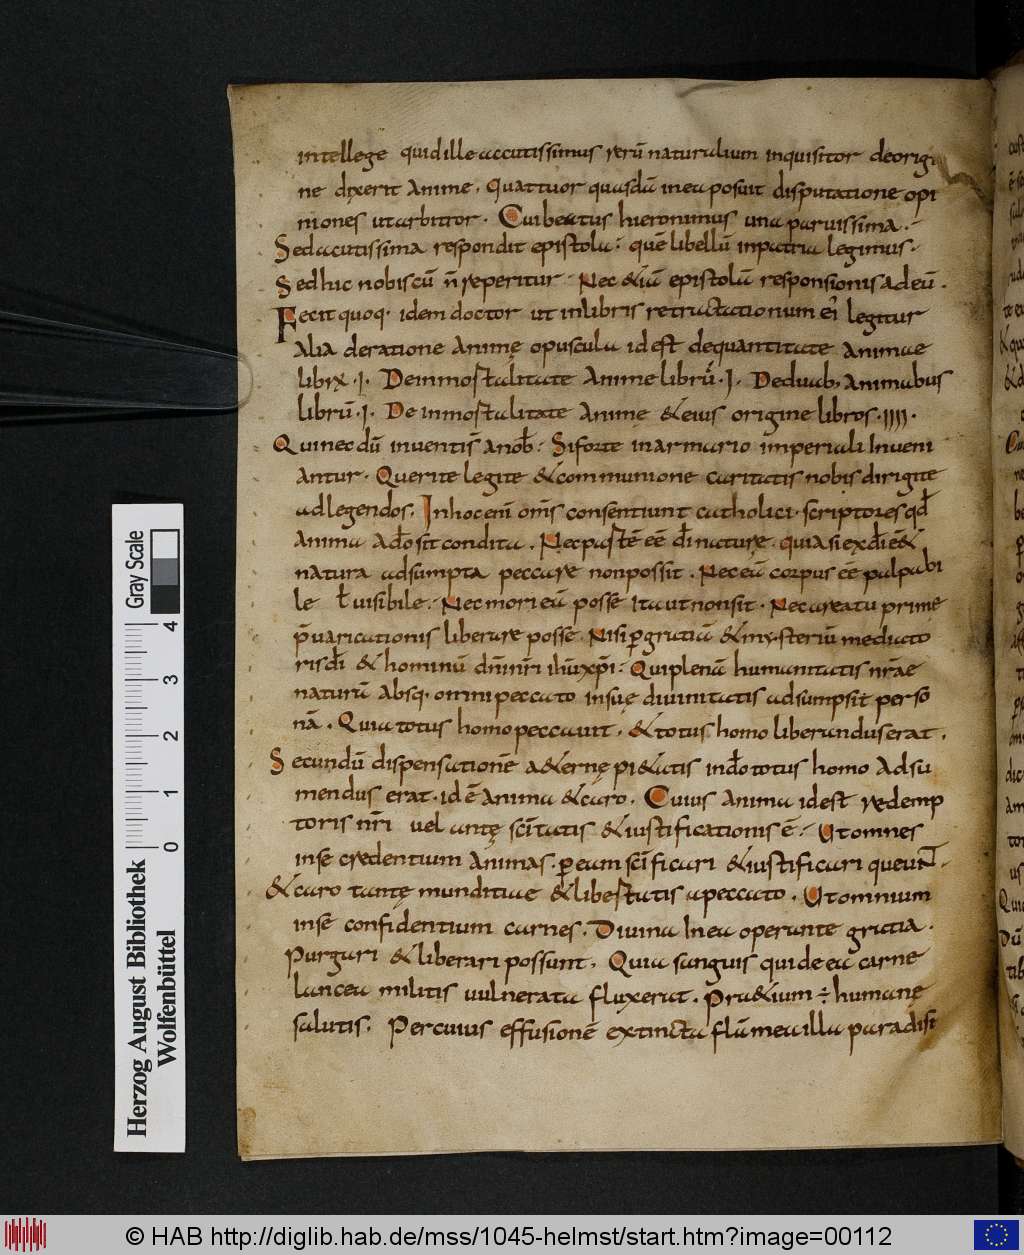 intellege quid ille accutissimus rerū naturalium inquisitor deorigi
ne dixerit anime. Quattuor quasdā in ea posuit disputatione opi
niones ut arbitror. Cui beatus hieronimus una parvissima.
Sed acutissima respondit epistola: quē libellū in patria legimus.
Sed hic nobiscū n̄ reperitur. Nec &iā epistolā responsionis ad eū.
Fecit quoq· idem doctor ut in libris retractationum ei legitur
Alia de ratione animę opuscula id est de quantitate animae
.I. De inmortalitate Anime librū .I. De duab; animabus
librū .I. De inmortalitate Anime & eius origine libros .IIII.
Qui necdū inventis̄ a nob̄: Si forte in armario imperiali Inveni
antur. Querite legite & communione caritatis nobis dirigite
ad legendos. In hoc eni̅ om̄s consentiunt catholici scriptores qđ
Anima a đo sit condita. Nec pastē eē đi nature. quia si ex đi eē&
natura adsumpta peccare non possit. Nec eā corpus eē palpabi
le ł visibile. Nec mori eā posse Ita ut non sit. Nec a reatu prime
p̄varicationis liberare posse. Nisi p gratiā & mysteriū mediato
ris đi & hominū dn̄i nr̄i ihū xp̄i: Qui plenā humanitatis nr̄ae
naturā Absq· omni peccato in suę divinitatis adsumpsit perso
nā. Quia totus homo peccavit. & totus homo liberandus erat.
Secundū dispensationē a&ernę pi&atis in đo totus homo Adsu
mendus erat. id ē anima & caro. Cuius anima id est redemp
toris nr̄i vel antę scī̄tatis & iustificationis ē. Ut omnes
in se credentium Animas. p eam scīficari & iustificari queunt.
& caro tantę munditiae & libertatis a peccato. Ut omnium
in se confidentium carnes. Divina In ea operante gratia.
Purgari & liberari possunt. Quia sanguis qui de ea carne
lancea militis vulnerata fluxerat. Pra&ium ÷ humanę
salutis. Per cuius effusionē extincta flāmea illa paradisi
Gray Scale
0 1 2 3 4
Herzog August Bibliothek
Wolfenbüttel
© HAB http://diglib.hab.de/mss/1045-helmst/start.htm?image=00112